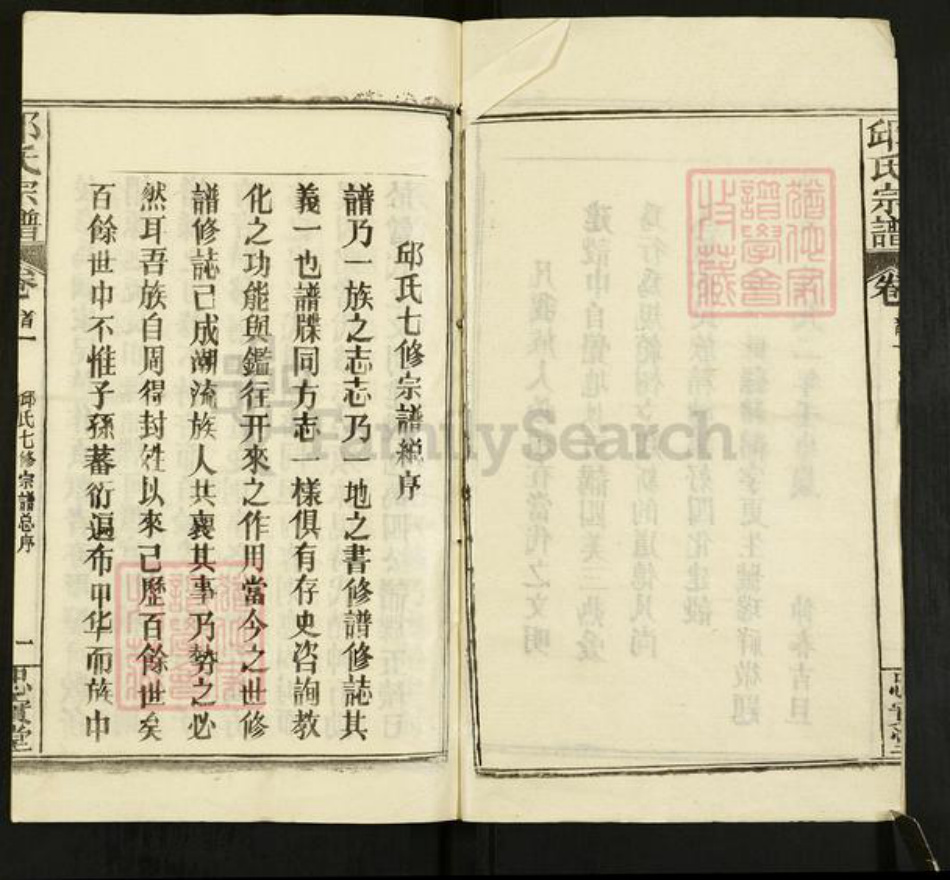 邱氏宗譜
卷
邱氏七修宗譜總序
譜乃一族之志志乃一地之書修譜修誌其
義一也譜牒同方志一樣俱有存史咨詢教
化之功能與鑑往开來之作用當今之世修
譜修誌已成潮流族人共襄其事乃勢之必
然耳吾族自周得封姓以來已歷百餘世矣
百餘世中不惟子孫蕃衍遍布中华而族中
氏宗譜
卷首一
邱氏七修宗譜总序
一
忠實堂
FamilySearch